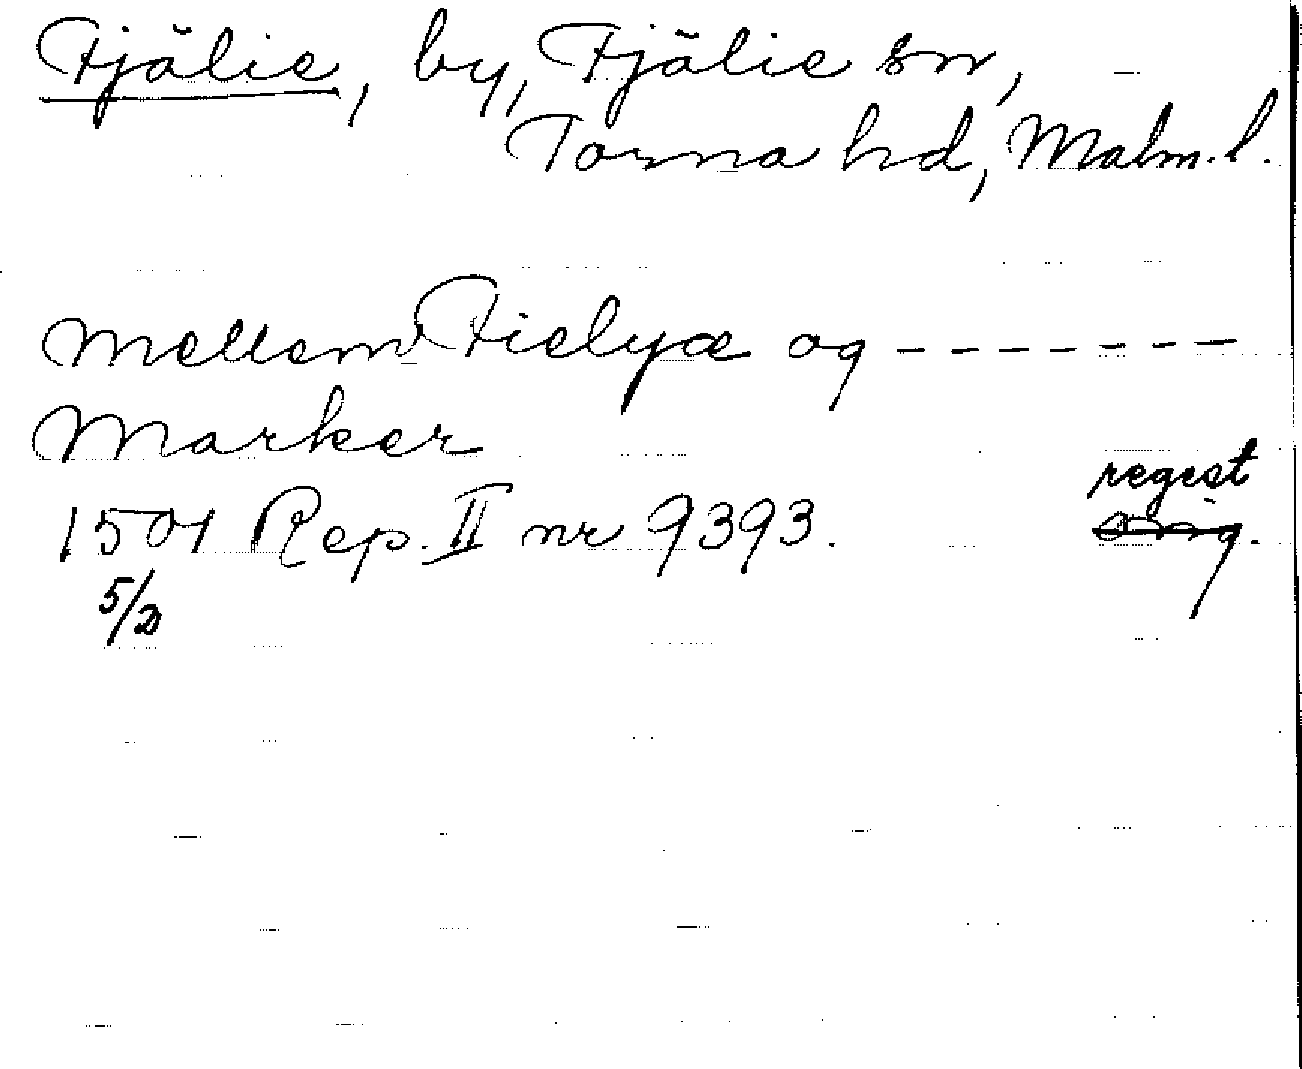 Fjälie, by, Fjälie sn,
Torna hd, Malm.l.
mellem Fielyæ og - - - - - - -
Marker
1501 Rep. II nr 9393.
regest
orig.
5/2